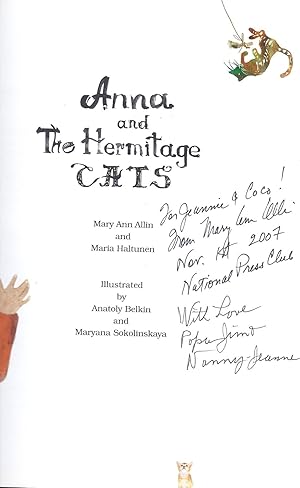 Anna
and
The Hermitage
CATS
Mary Ann Allin
and
Maria Haltunen
Illustrated
by
Anatoly Belkin
and
Maryana Sokolinskaya
For Jeannie & Coco!
from Mary Ann Allin
Nov. 2007
National Press Club
With Love
Papa Jim &
Nanny-Jeanne